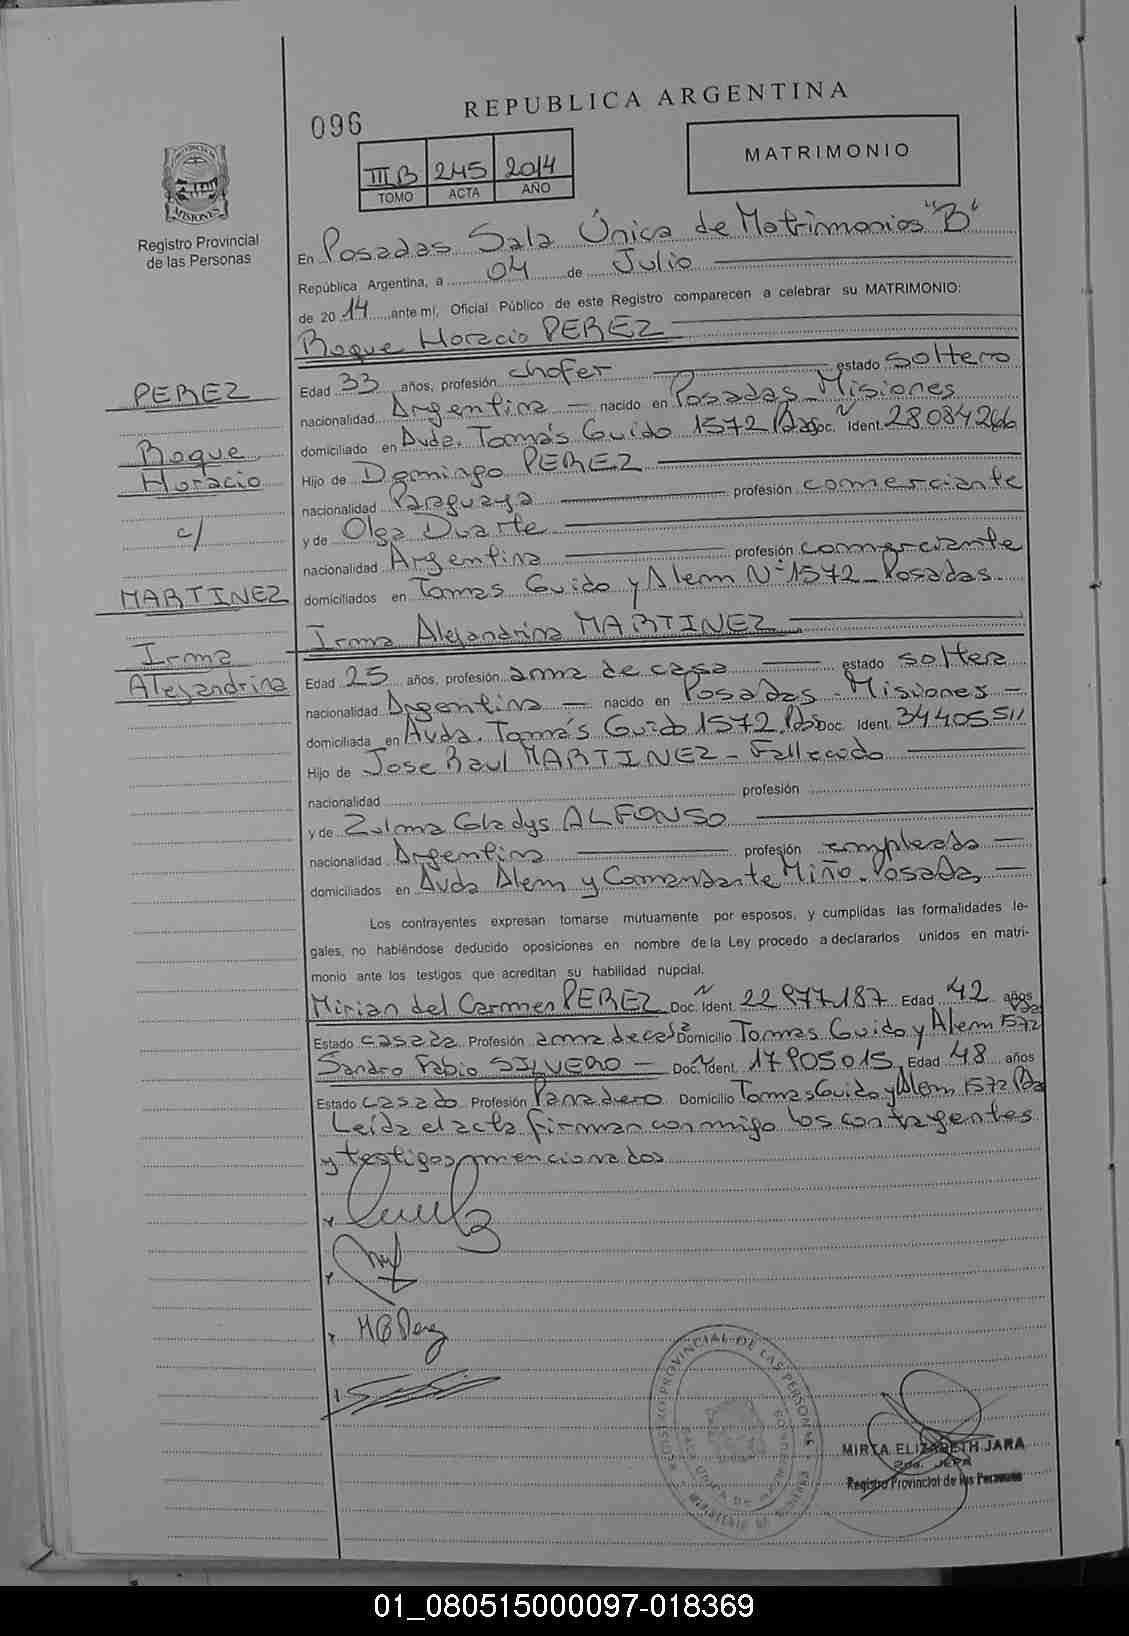 REPUBLICA ARGENTINA
096
MATRIMONIO
III B 245 2014
TOMO ACTA AÑO
PROVINCIA DE MISIONES
Registro Provincial
de las Personas
En Posadas Sala Única de Matrimonios "B"
República Argentina, a 04 de Julio
de 2014 ante mí, Oficial Público de este Registro comparecen a celebrar su MATRIMONIO:
Roque Horacio PEREZ
Edad 33 años, profesión chofer estado soltero
nacionalidad Argentina nacido en Posadas Misiones
domiciliado en Avda. Tomás Guido 1572 Pdas Doc. Ident. N 28084266
Hijo de Domingo PEREZ
nacionalidad Paraguaya profesión comerciante
y de Olga Duarte
nacionalidad Argentina profesión comerciante
domiciliados en Tomas Guido y Alem Nº 1572 Posadas
Irma Alejandrina MARTINEZ
Edad 25 años, profesión ama de casa estado soltera
nacionalidad Argentina nacido en Posadas - Misiones
domiciliada en Avda. Tomás Guido 1572 Pdas Doc. Ident. 34405511
Hijo de Jose Raul MARTINEZ - Fallecido
nacionalidad profesión
y de Zulma Gladys ALFONSO
nacionalidad Argentina profesión empleada
domiciliados en Avda Alem y Comandante Miño. Posadas
Los contrayentes expresan tomarse mutuamente por esposos, y cumplidas las formalidades le-
gales, no habiéndose deducido oposiciones en nombre de la Ley procedo a declararlos unidos en matri-
monio ante los testigos que acreditan su habilidad nupcial.
Mirian del Carmen PEREZ Doc. Ident. N 22977187 Edad 42 años
Estado casada Profesión ama de casa Domicilio Tomas Guido y Alem 1572 Pdas
Sandro Fabio SILVERO Doc. Ident. N 17905015 Edad 48 años
Estado casado Profesión Panadero Domicilio Tomas Guido y Alem 1572 Pdas
Leída el acta firman conmigo los contrayentes
y testigos mencionados
PEREZ
Roque
Horacio
c/
MARTINEZ
Irma
Alejandrina
REGISTRO PROVINCIAL DE LAS PERSONAS
MIRTA ELIZABETH JARA
2da. JEFA
Registro Provincial de las Personas
01_080515000097-018369